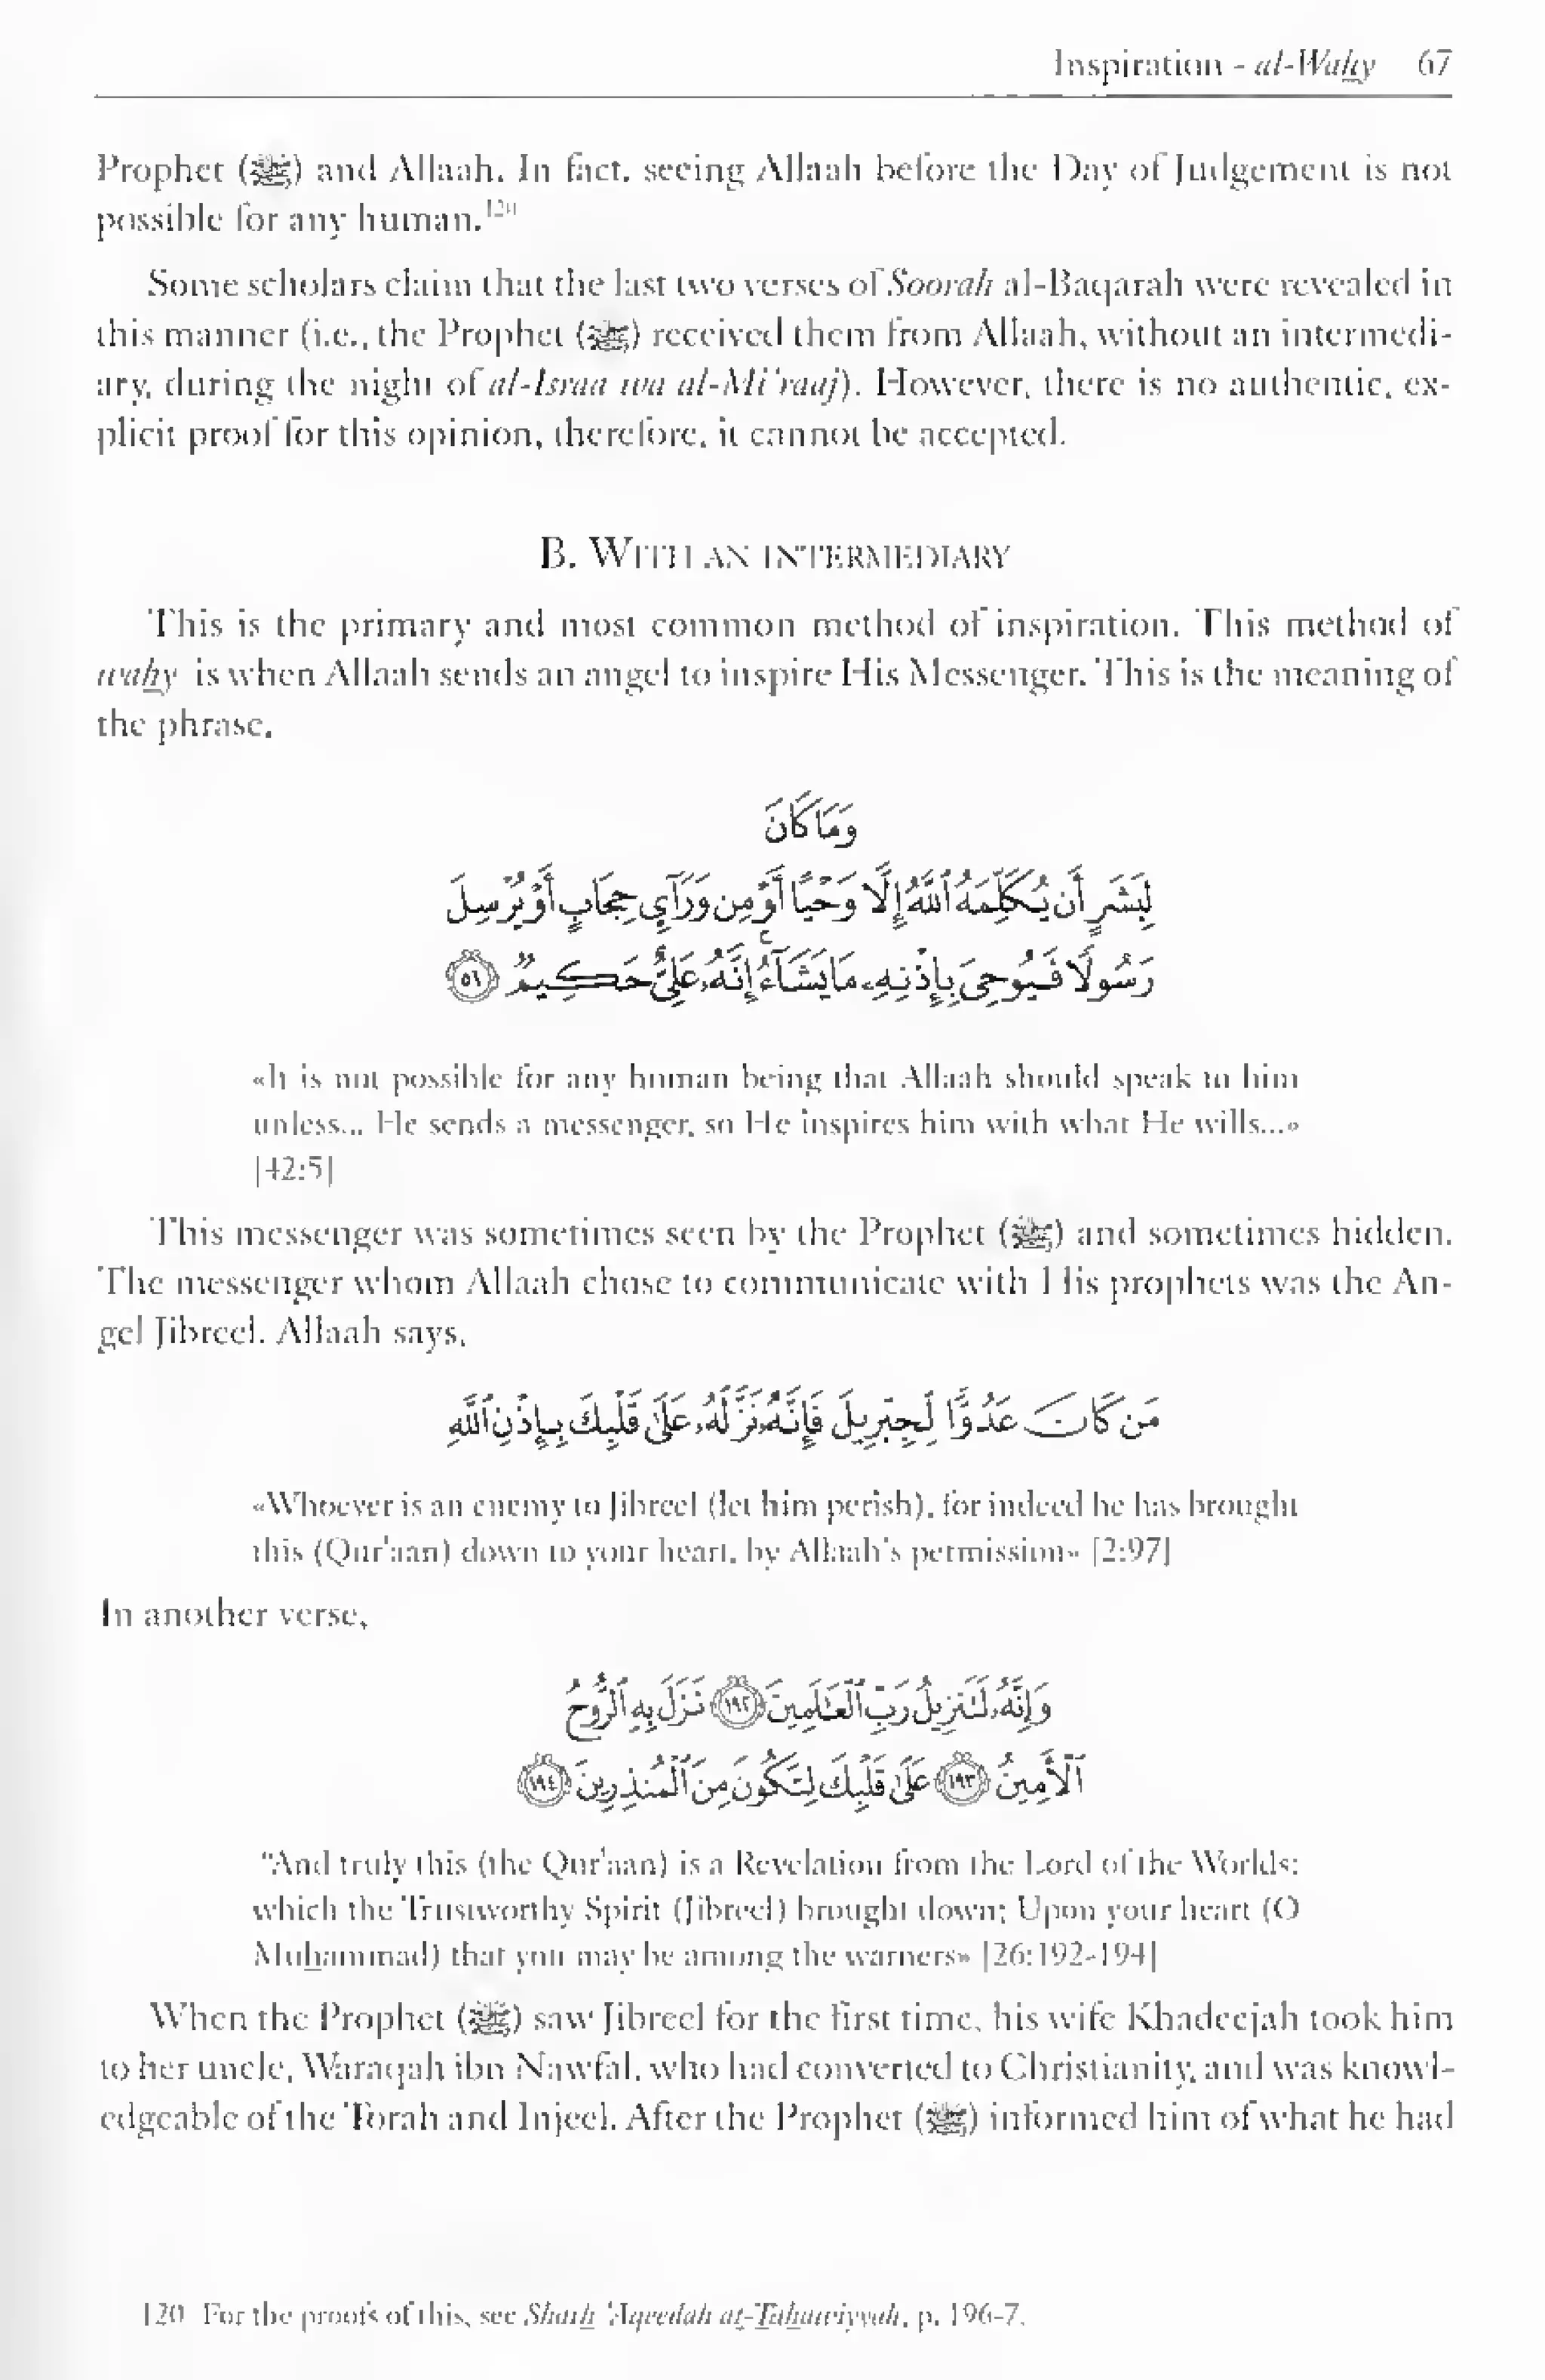 Inspiration - al-Waḥy 67
Prophet (ﷺ) and Allaah. In fact, seeing Allaah before the Day of Judgement is not
possible for any human.120
Some scholars claim that the last two verses of Soorah al-Baqarah were revealed in
this manner (i.e., the Prophet (ﷺ) received them from Allaah, without an intermedi-
ary, during the night of al-Israa wa al-Mi'raaj). However, there is no authentic, ex-
plicit proof for this opinion, therefore, it cannot be accepted.
B. WITH AN INTERMEDIARY
This is the primary and most common method of inspiration. This method of
waḥy is when Allaah sends an angel to inspire His Messenger. This is the meaning of
the phrase,
وَمَا كَانَ
لِبَشَرٍ أَن يُكَلِّمَهُ ٱللَّهُ إِلَّا وَحْيًا أَوْ مِن وَرَآئِ حِجَابٍ أَوْ يُرْسِلَ
رَسُولًا فَيُوحِىَ بِإِذْنِهِۦ مَا يَشَآءُ ۚ إِنَّهُۥ عَلِىٌّ حَكِيمٌ ﴿٥١﴾
«It is not possible for any human being that Allaah should speak to him
unless... He sends a messenger, so He inspires him with what He wills...»
[42:5]
This messenger was sometimes seen by the Prophet (ﷺ) and sometimes hidden.
The messenger whom Allaah chose to communicate with His prophets was the An-
gel Jibreel. Allaah says,
مَن كَانَ عَدُوًّا لِّجِبْرِيلَ فَإِنَّهُۥ نَزَّلَهُۥ عَلَىٰ قَلْبِكَ بِإِذْنِ ٱللَّهِ
«Whoever is an enemy to Jibreel (let him perish), for indeed he has brought
this (Qur'aan) down to your heart, by Allaah's permission» [2:97]
In another verse,
وَإِنَّهُۥ لَتَنزِيلُ رَبِّ ٱلْعَٰلَمِينَ ﴿١٩٢﴾ نَزَلَ بِهِ ٱلرُّوحُ
ٱلْأَمِينُ ﴿١٩٣﴾ عَلَىٰ قَلْبِكَ لِتَكُونَ مِنَ ٱلْمُنذِرِينَ ﴿١٩٤﴾
"And truly this (the Qur'aan) is a Revelation from the Lord of the Worlds;
which the Trustworthy Spirit (Jibreel) brought down; Upon your heart (O
Muḥammad) that you may be among the warners» [26:192-194]
When the Prophet (ﷺ) saw Jibreel for the first time, his wife Khadeejah took him
to her uncle, Waraqah ibn Nawfal, who had converted to Christianity, and was knowl-
edgeable of the Torah and Injeel. After the Prophet (ﷺ) informed him of what he had
120 For the proofs of this, see Sharḥ 'Aqeedah aṭ-Ṭaḥawiyyah, p. 196-7.